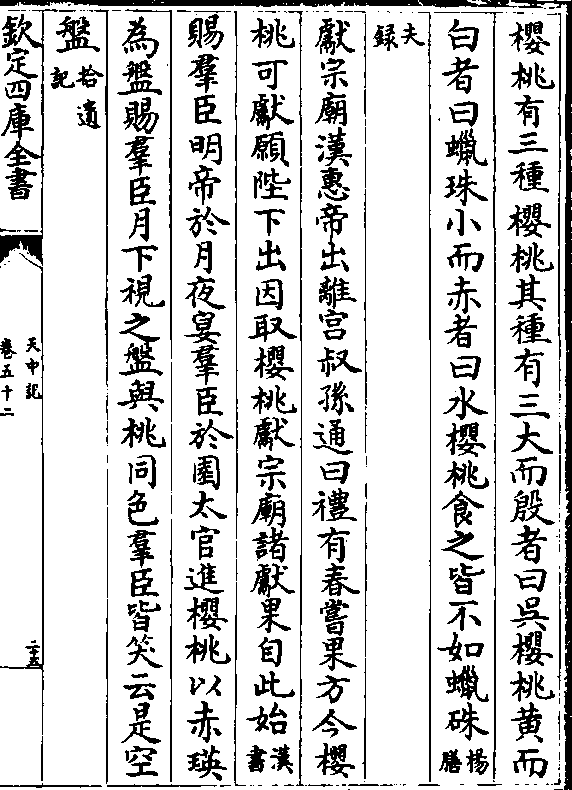 櫻桃有三種櫻桃其種有三大而殷者曰吳櫻桃黄而
白者曰蠟珠小而赤者曰水櫻桃食之皆不如蠟硃楊膳
夫録
獻宗廟漢惠帝出離宫叔孫通曰禮有春嘗果方今櫻
桃可獻願陛下出因取櫻桃獻宗廟諸獻果自此始漢書
賜羣臣明帝於月夜宴羣臣於園太官進櫻桃以赤瑛
為盤賜羣臣月下視之盤與桃同色羣臣皆笑云是空
盤拾遺記
欽定四庫全書
天中記
卷五十二
二十五